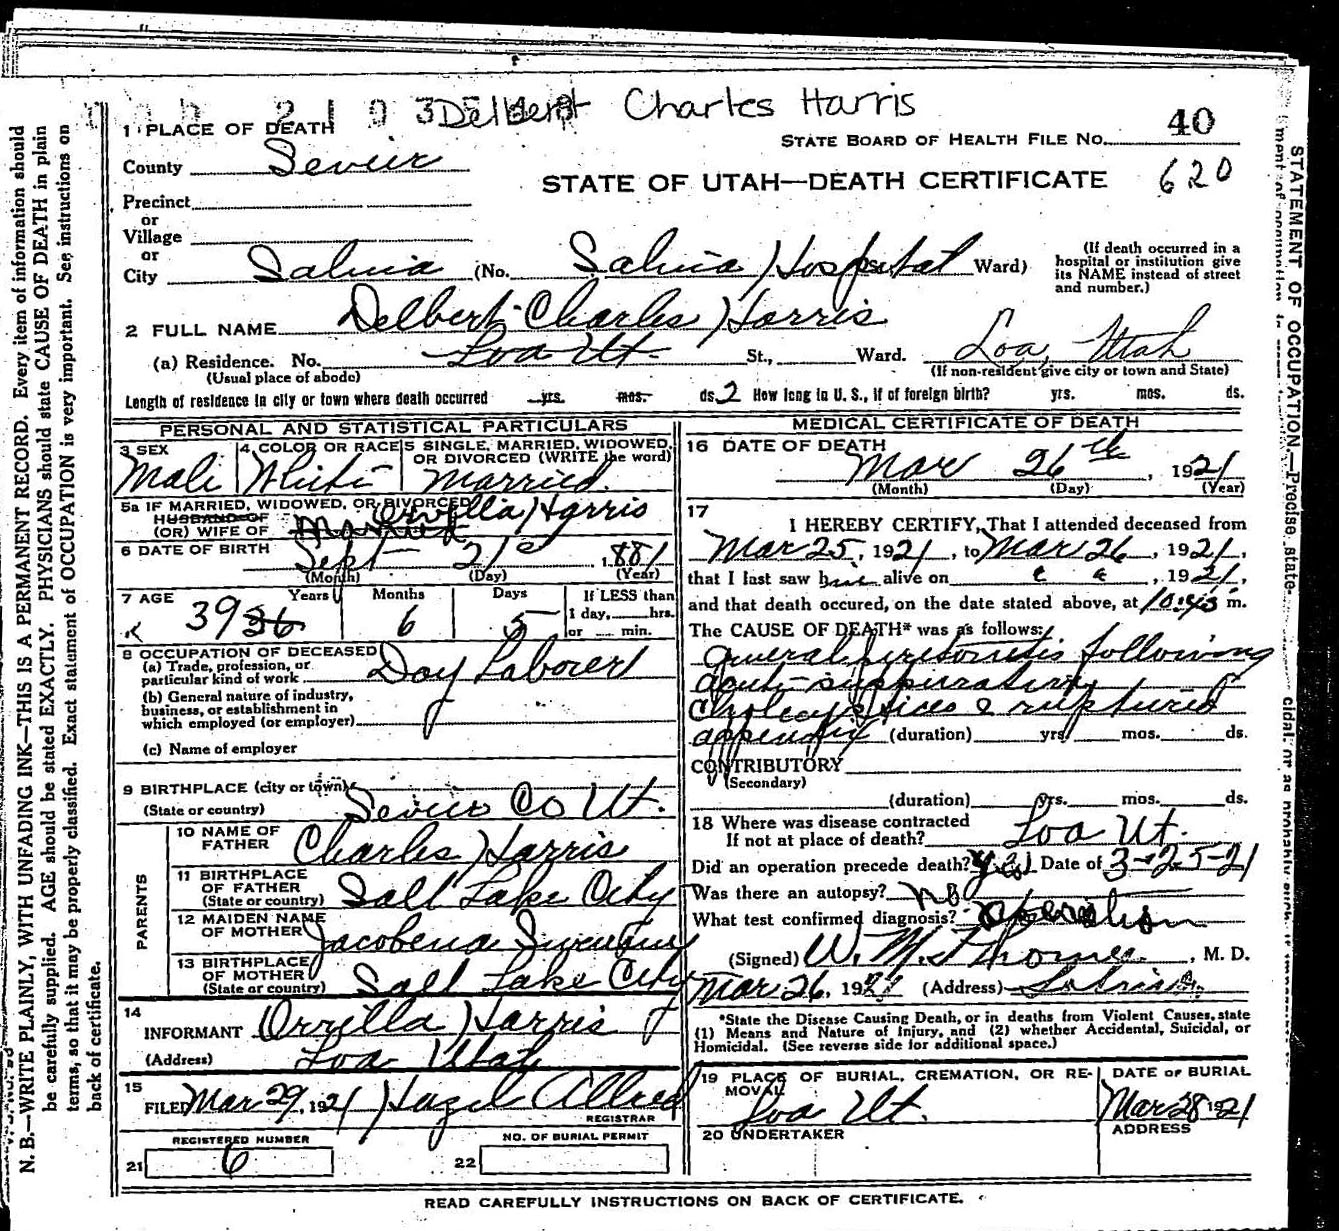 Delbert Charles Harris
1 PLACE OF DEATH
STATE BOARD OF HEALTH FILE NO. 40
County Sevier
STATE OF UTAH—DEATH CERTIFICATE 620
Precinct
or
Village
or
City Salina (No. Salina Hospital Ward)
(If death occurred in a hospital or institution give its NAME instead of street and number.)
2 FULL NAME Delbert Charles Harris
(a) Residence. No. Loa Ut. St., Ward. Loa, Utah
(Usual place of abode) (If non-resident give city or town and State)
Length of residence in city or town where death occurred yrs. mos. ds. 2 How long in U. S., if of foreign birth? yrs. mos. ds.
PERSONAL AND STATISTICAL PARTICULARS
3 SEX Male
4 COLOR OR RACE White
5 SINGLE, MARRIED, WIDOWED, OR DIVORCED (WRITE the word) Married.
5a IF MARRIED, WIDOWED, OR DIVORCED
HUSBAND OF
(OR) WIFE OF Orvilla Harris
6 DATE OF BIRTH Sept 21 1881
(Month) (Day) (Year)
7 AGE Years Months Days If LESS than
39 36 6 5 1 day, hrs.
or min.
8 OCCUPATION OF DECEASED
(a) Trade, profession, or particular kind of work Day Laborer
(b) General nature of industry, business, or establishment in which employed (or employer)
(c) Name of employer
9 BIRTHPLACE (city or town)
(State or country) Sevier Co Ut.
PARENTS
10 NAME OF FATHER Charles Harris
11 BIRTHPLACE OF FATHER
(State or country) Salt Lake City
12 MAIDEN NAME OF MOTHER Jacobena
13 BIRTHPLACE OF MOTHER
(State or country) Salt Lake City
14
INFORMANT Orvilla Harris
(Address) Loa Utah
15
FILED Mar 29, 1921 Hazel Allred
REGISTRAR
REGISTERED NUMBER NO. OF BURIAL PERMIT
21 6 22
MEDICAL CERTIFICATE OF DEATH
16 DATE OF DEATH
Mar 26th, 1921
(Month) (Day) (Year)
17
I HEREBY CERTIFY, That I attended deceased from
Mar 25, 1921, to Mar 26, 1921,
that I last saw him alive on " ", 1921,
and that death occured, on the date stated above, at 10:45 m.
The CAUSE OF DEATH* was as follows:
general peritonitis following
acute suppurative
& ruptured
appendix (duration) yrs. mos. ds.
CONTRIBUTORY
(Secondary)
(duration) yrs. mos. ds.
18 Where was disease contracted
If not at place of death? Loa Ut.
Did an operation precede death? Yes Date of 3-25-21
Was there an autopsy? no
What test confirmed diagnosis? operation
(Signed) , M. D.
Mar 26, 1921 (Address) Salina
*State the Disease Causing Death, or in deaths from Violent Causes, state
(1) Means and Nature of Injury, and (2) whether Accidental, Suicidal, or
Homicidal. (See reverse side for additional space.)
19 PLACE OF BURIAL, CREMATION, OR REMOVAL DATE OF BURIAL
Loa Ut. Mar 28 1921
20 UNDERTAKER ADDRESS
READ CAREFULLY INSTRUCTIONS ON BACK OF CERTIFICATE.
N. B.—WRITE PLAINLY, WITH UNFADING INK—THIS IS A PERMANENT RECORD. Every item of information should
be carefully supplied. AGE should be stated EXACTLY. PHYSICIANS should state CAUSE OF DEATH in plain
terms, so that it may be properly classified. Exact statement of OCCUPATION is very important. See instructions on
back of certificate.
STATEMENT OF OCCUPATION—Precise state-